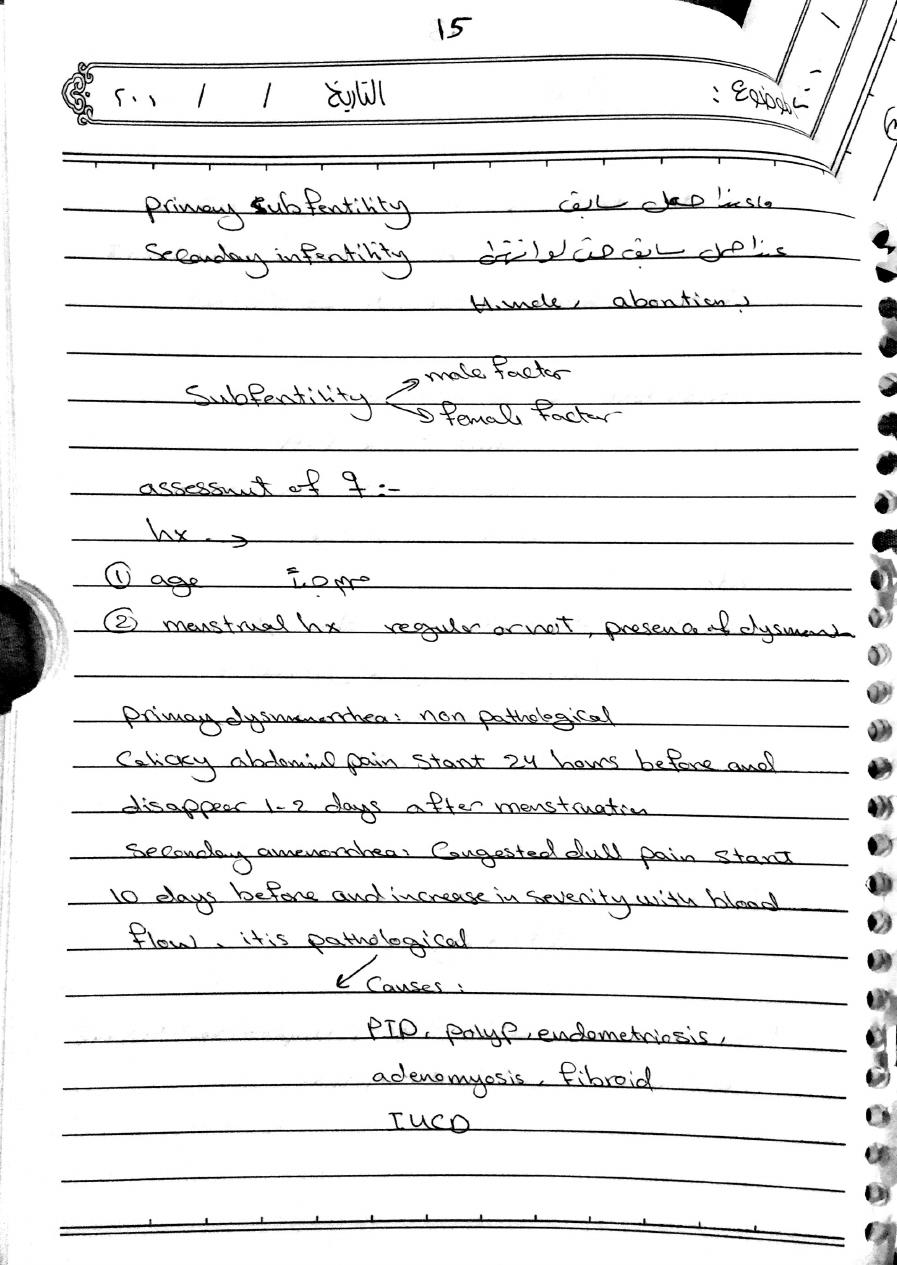 15
الموضوع : التاريخ / / ٢٠١
primary subfertility ماعندا حمل سابق
Seconday infertility عندا حمل سابق حتى لو انتهى
H.mole, abortion
Subfertility male factor
female factor
assessmut of ♀ :-
hx. →
① age
② menstrual hx regular or not, presence of dysmen
primary dysmenorrhea: non pathological
Colicky abdominl pain start 24 hours before and
disapper 1-2 days after menstruation
Seconday amenorrhea: Congested dull pain start
10 days before and increase in severity with blood
flow, it is pathological
Causes :
PID, polyp, endometriosis,
adenomyosis, fibroid
IUCD